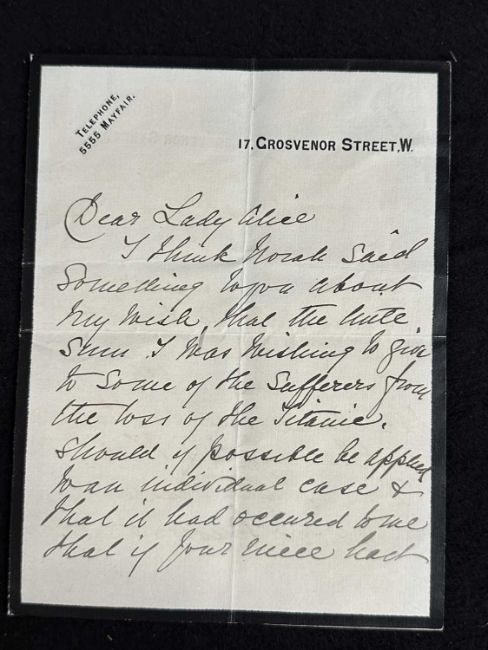 TELEPHONE,
5555 MAYFAIR.
17, GROSVENOR STREET, W.
Dear Lady Alice
I think Norah said
something to you about
my wish, that the little
sum I was wishing to give
to some of the sufferers from
the loss of the Titanic.
should if possible be applied
to an individual case &
that it had occured to me
that if your niece had